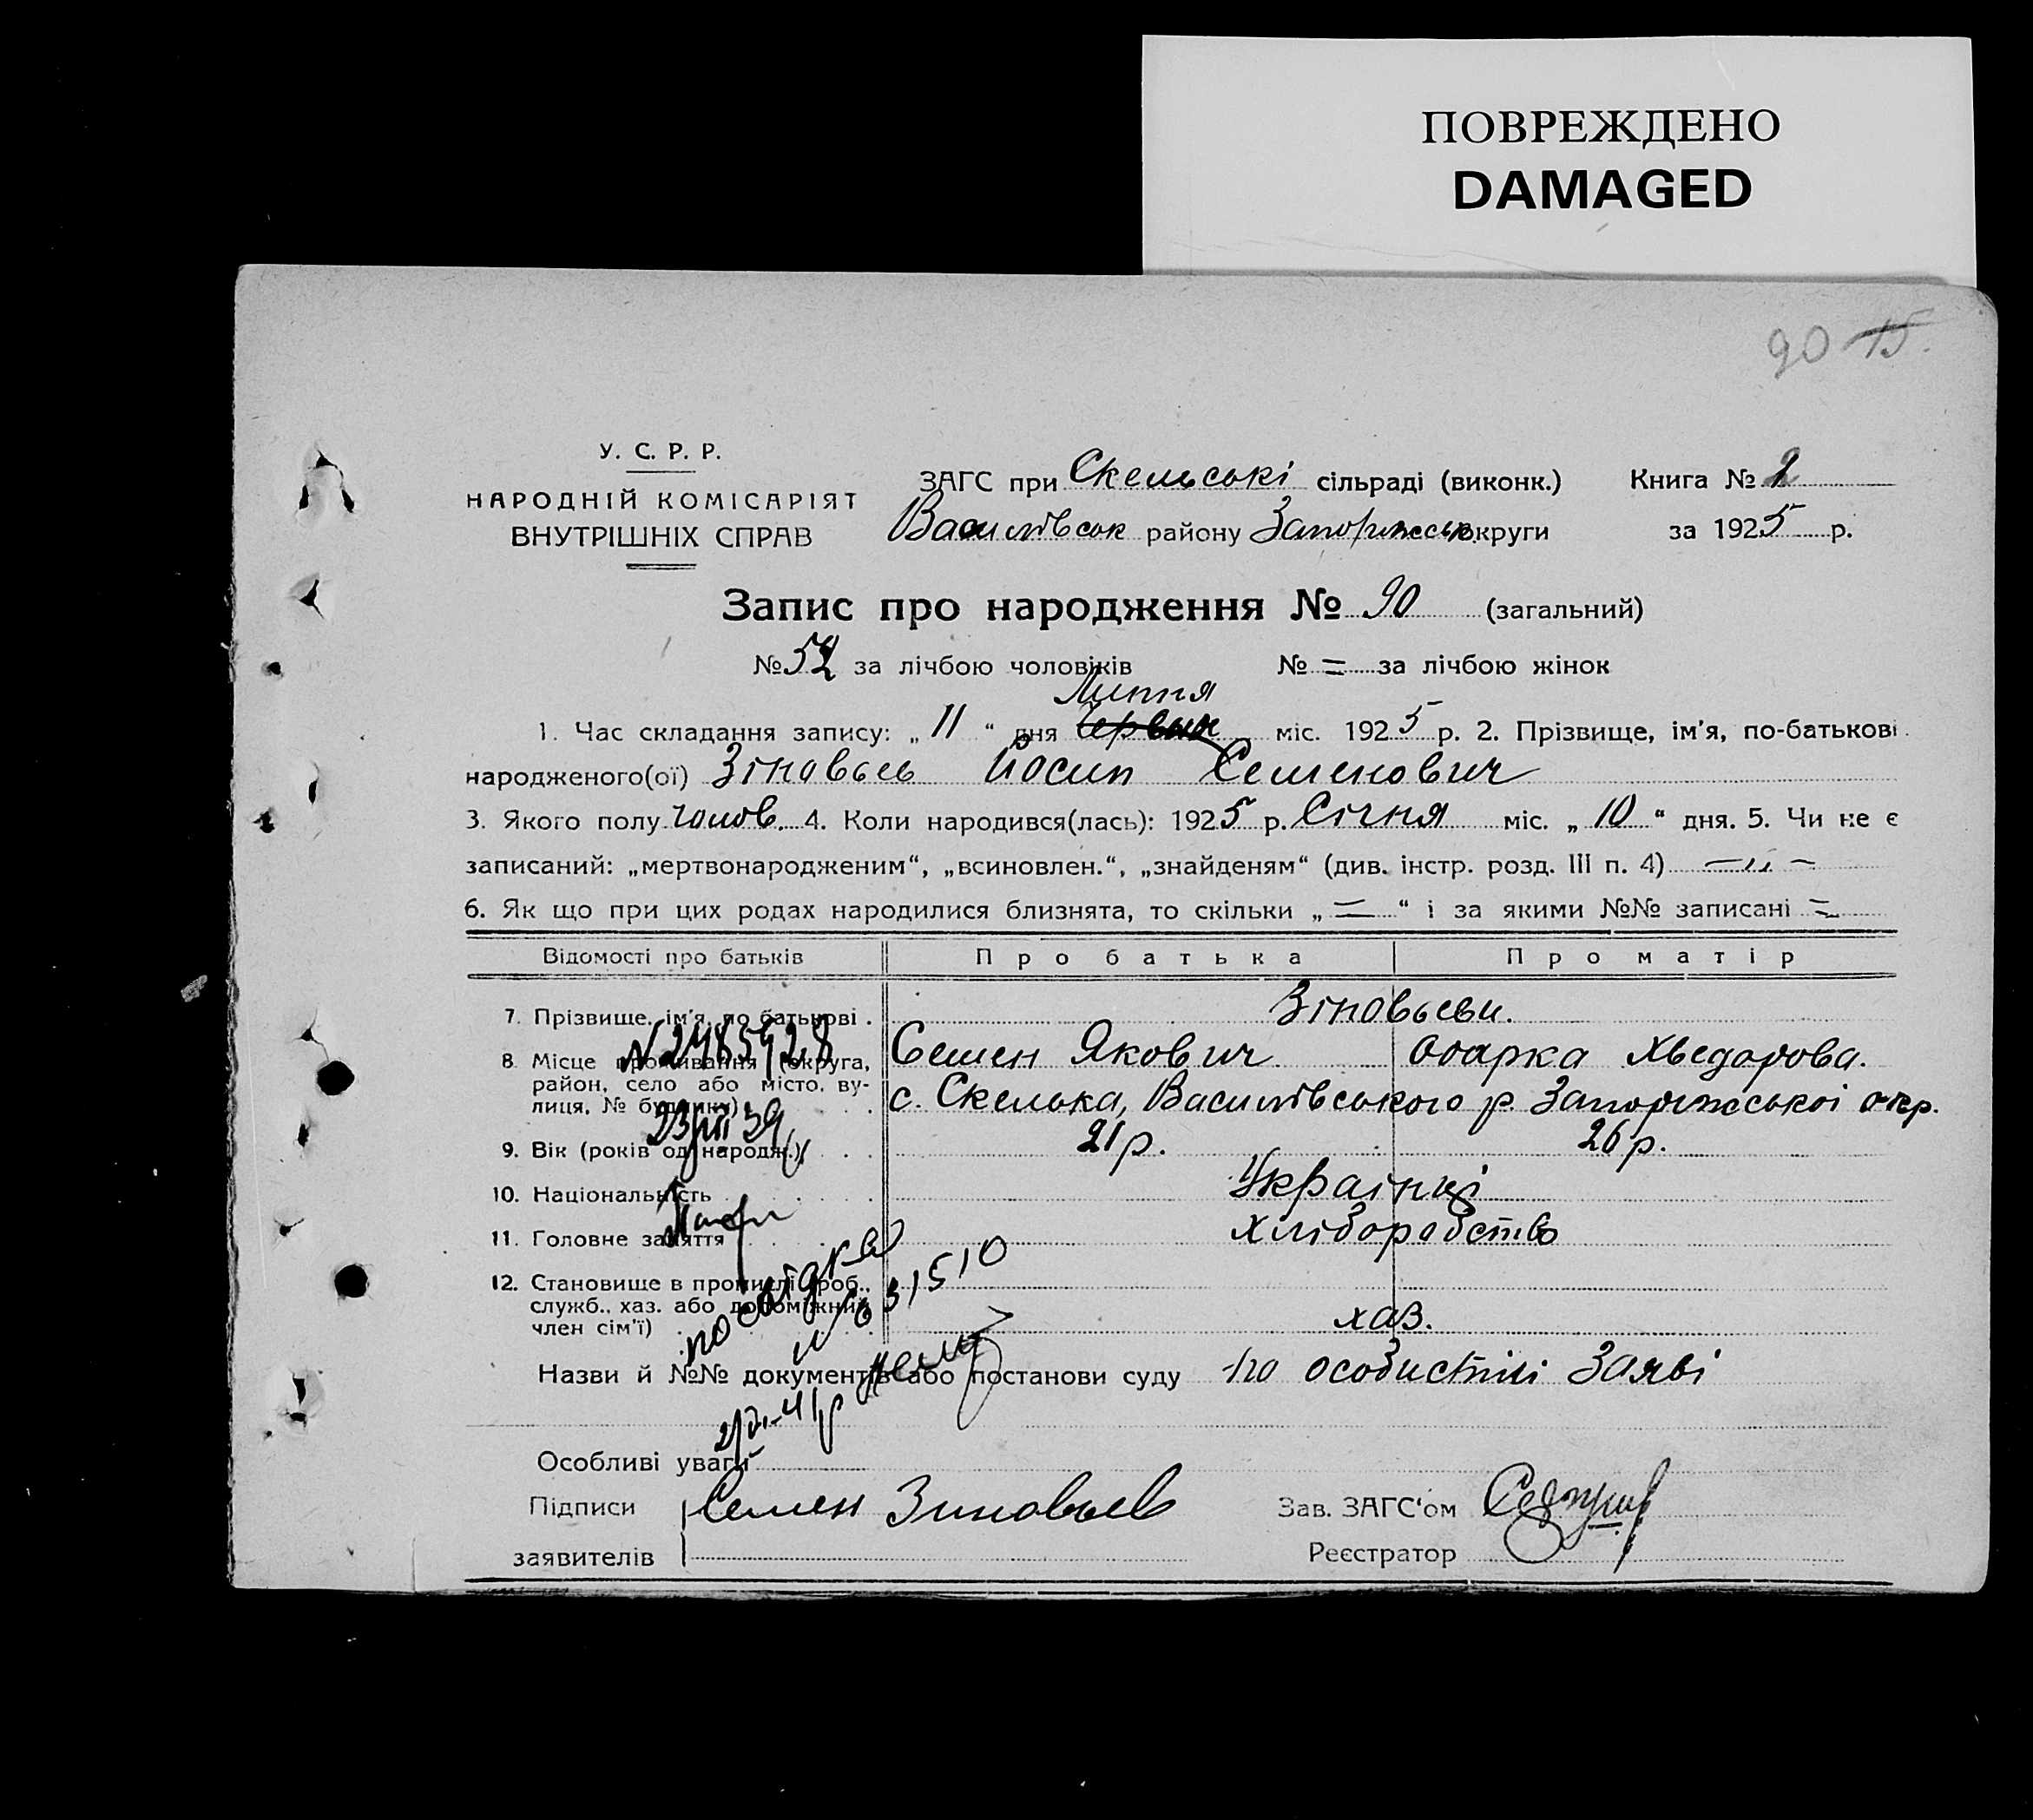 ПОВРЕЖДЕНО
DAMAGED
90 15.
У. С. Р. Р.
НАРОДНІЙ КОМІСАРІЯТ
ВНУТРІШНІХ СПРАВ
ЗАГС при Скельські сільраді (виконк.) Книга № 2
Василівськ району Запоріжськ. округи за 1925 р.
Запис про народження № 90 (загальний)
№ 52 за лічбою чоловіків № = за лічбою жінок
Липня
1. Час складання запису: „11“ дня Червня міс. 1925 р. 2. Прізвище, ім'я, по-батькові
народженого(ої) Зіновьєв Йосип Семенович
3. Якого полу чолов. 4. Коли народився(лась): 1925 р. Січня міс. „10“ дня. 5. Чи не є
записаний: „мертвонародженим“, „всиновлен.“, „знайденям“ (див. інстр. розд. III п. 4) —„—
6. Як що при цих родах народилися близнята, то скільки „=“ і за якими №№ записані =
Відомості про батьків Про батька Про матір
7. Прізвище, ім'я, по батькові . Зіновьєви.
Семен Якович Одарка Хведорова.
8. Місце проживання (округа,
район, село або місто, ву-
лиця, № будинку) с. Скелька, Василівського р. Запоріжської окр.
№2485928
23/VII 39
9. Вік (років од народж.) 21 р. 26 р.
10. Національність Українці
11. Головне заняття хліборобство
12. Становище в промислі (роб.,
служб., хаз. або допоміжний
член сім'ї) хаз.
посвідка
№ 631510
Назви й №№ документів або постанови суду по особистій заяві
Особливі уваги
Підписи Семен Зиновьев Зав. ЗАГС'ом
заявителів Реєстратор